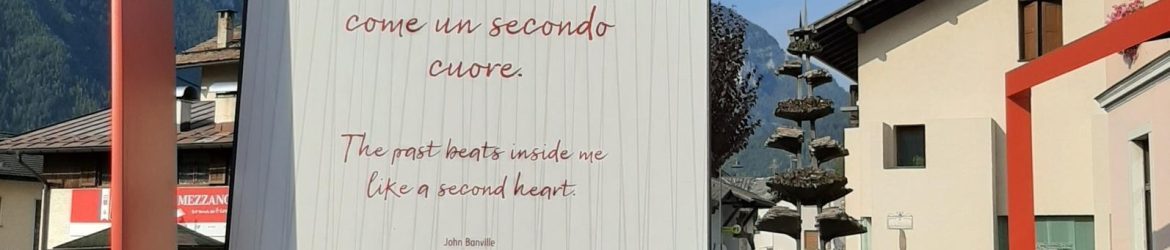 come un secondo
cuore.
The past beats inside me
like a second heart.
John Banville
MEZZANO